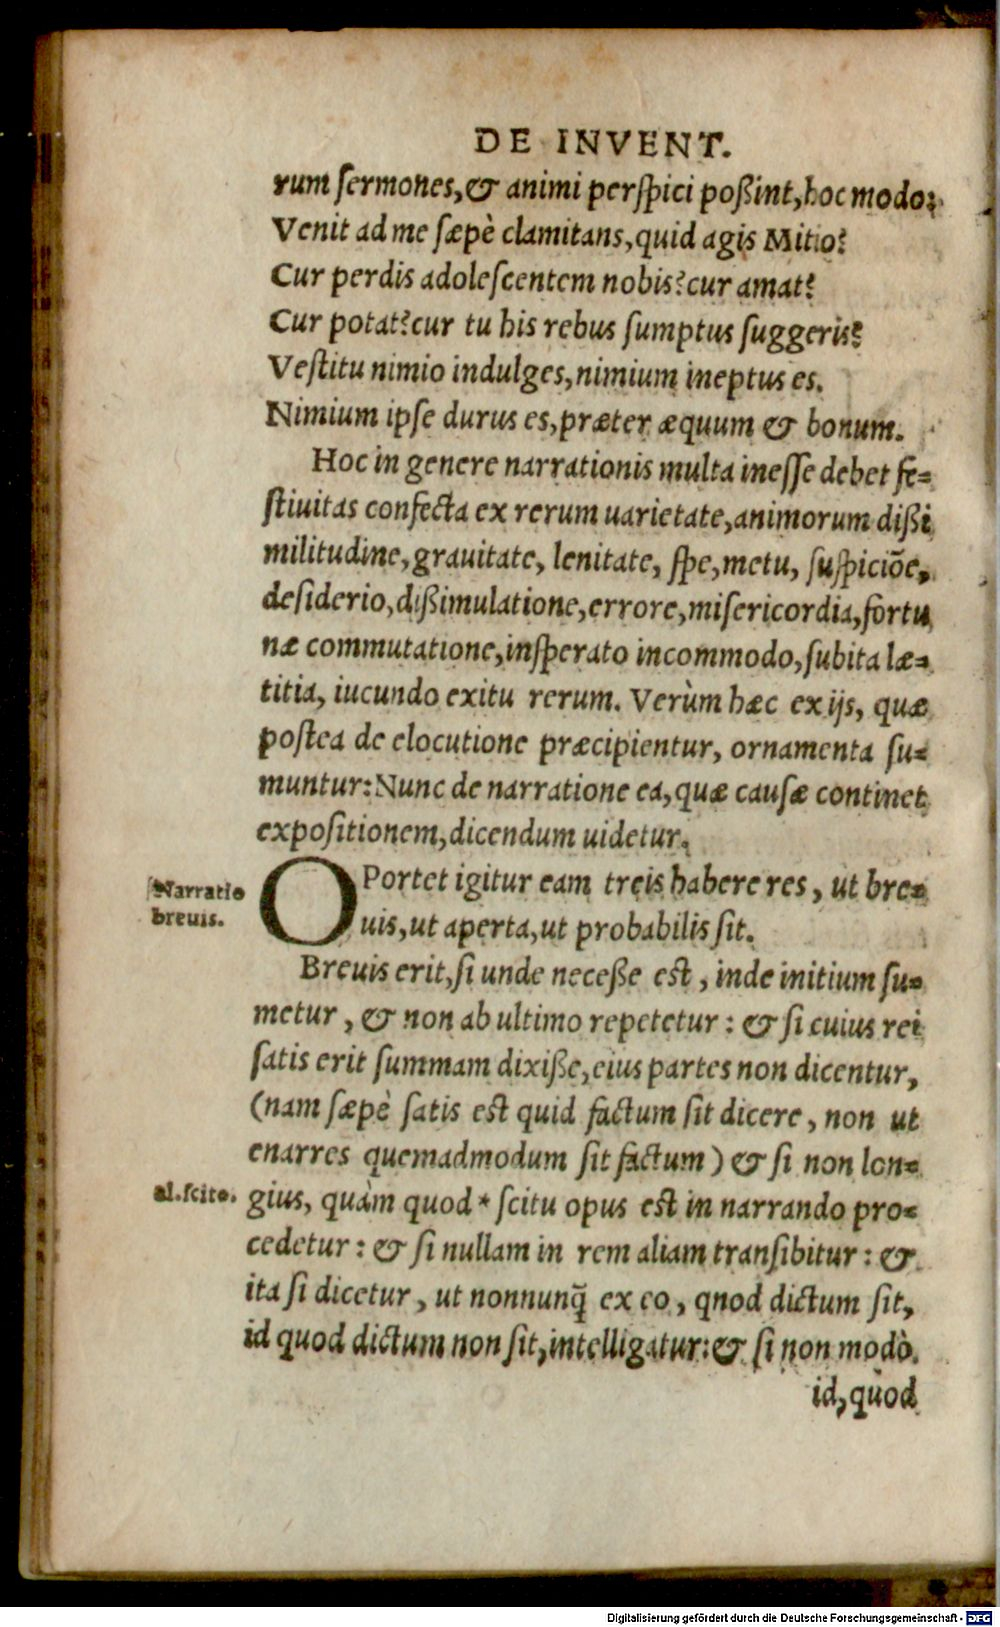 DE INVENT.
rum sermones,& animi perspici poßint,hoc modo:
Venit ad me sæpè clamitans,quid agis Mitio?
Cur perdis adolescentem nobis?cur amat?
Cur potat?cur tu his rebus sumptus suggeris?
Vestitu nimio indulges,nimium ineptus es.
Nimium ipse durus es,præter æquum & bonum.
Hoc in genere narrationis multa inesse debet fe-
stiuitas confecta ex rerum uarietate,animorum dißi
militudine,grauitate, lenitate, spe,metu, suspiciōe,
desiderio,dißimulatione,errore,misericordia,fortu
næ commutatione,insperato incommodo,subita læ-
titia, iucundo exitu rerum. Verùm hæc ex ijs, quæ
postea de elocutione præcipientur, ornamenta su-
muntur:Nunc de narratione ea,quæ causæ continet
expositionem,dicendum uidetur.
Narratio
breuis.
OPortet igitur eam treis habere res, ut bre-
uis,ut aperta,ut probabilis sit.
Breuis erit,si unde neceße est, inde initium su-
metur, & non ab ultimo repetetur: & si cuius rei
satis erit summam dixiße,eius partes non dicentur,
(nam sæpè satis est quid factum sit dicere, non ut
enarres quemadmodum sit factum) & si non lon-
al.scito.
gius, quàm quod * scitu opus est in narrando pro-
cedetur: & si nullam in rem aliam transibitur: &
ita si dicetur, ut nonnunq̃ ex eo, qnod dictum sit,
id quod dictum non sit,intelligatur:& si non modò
id,quod
Digitalisierung gefördert durch die Deutsche Forschungsgemeinschaft - DFG